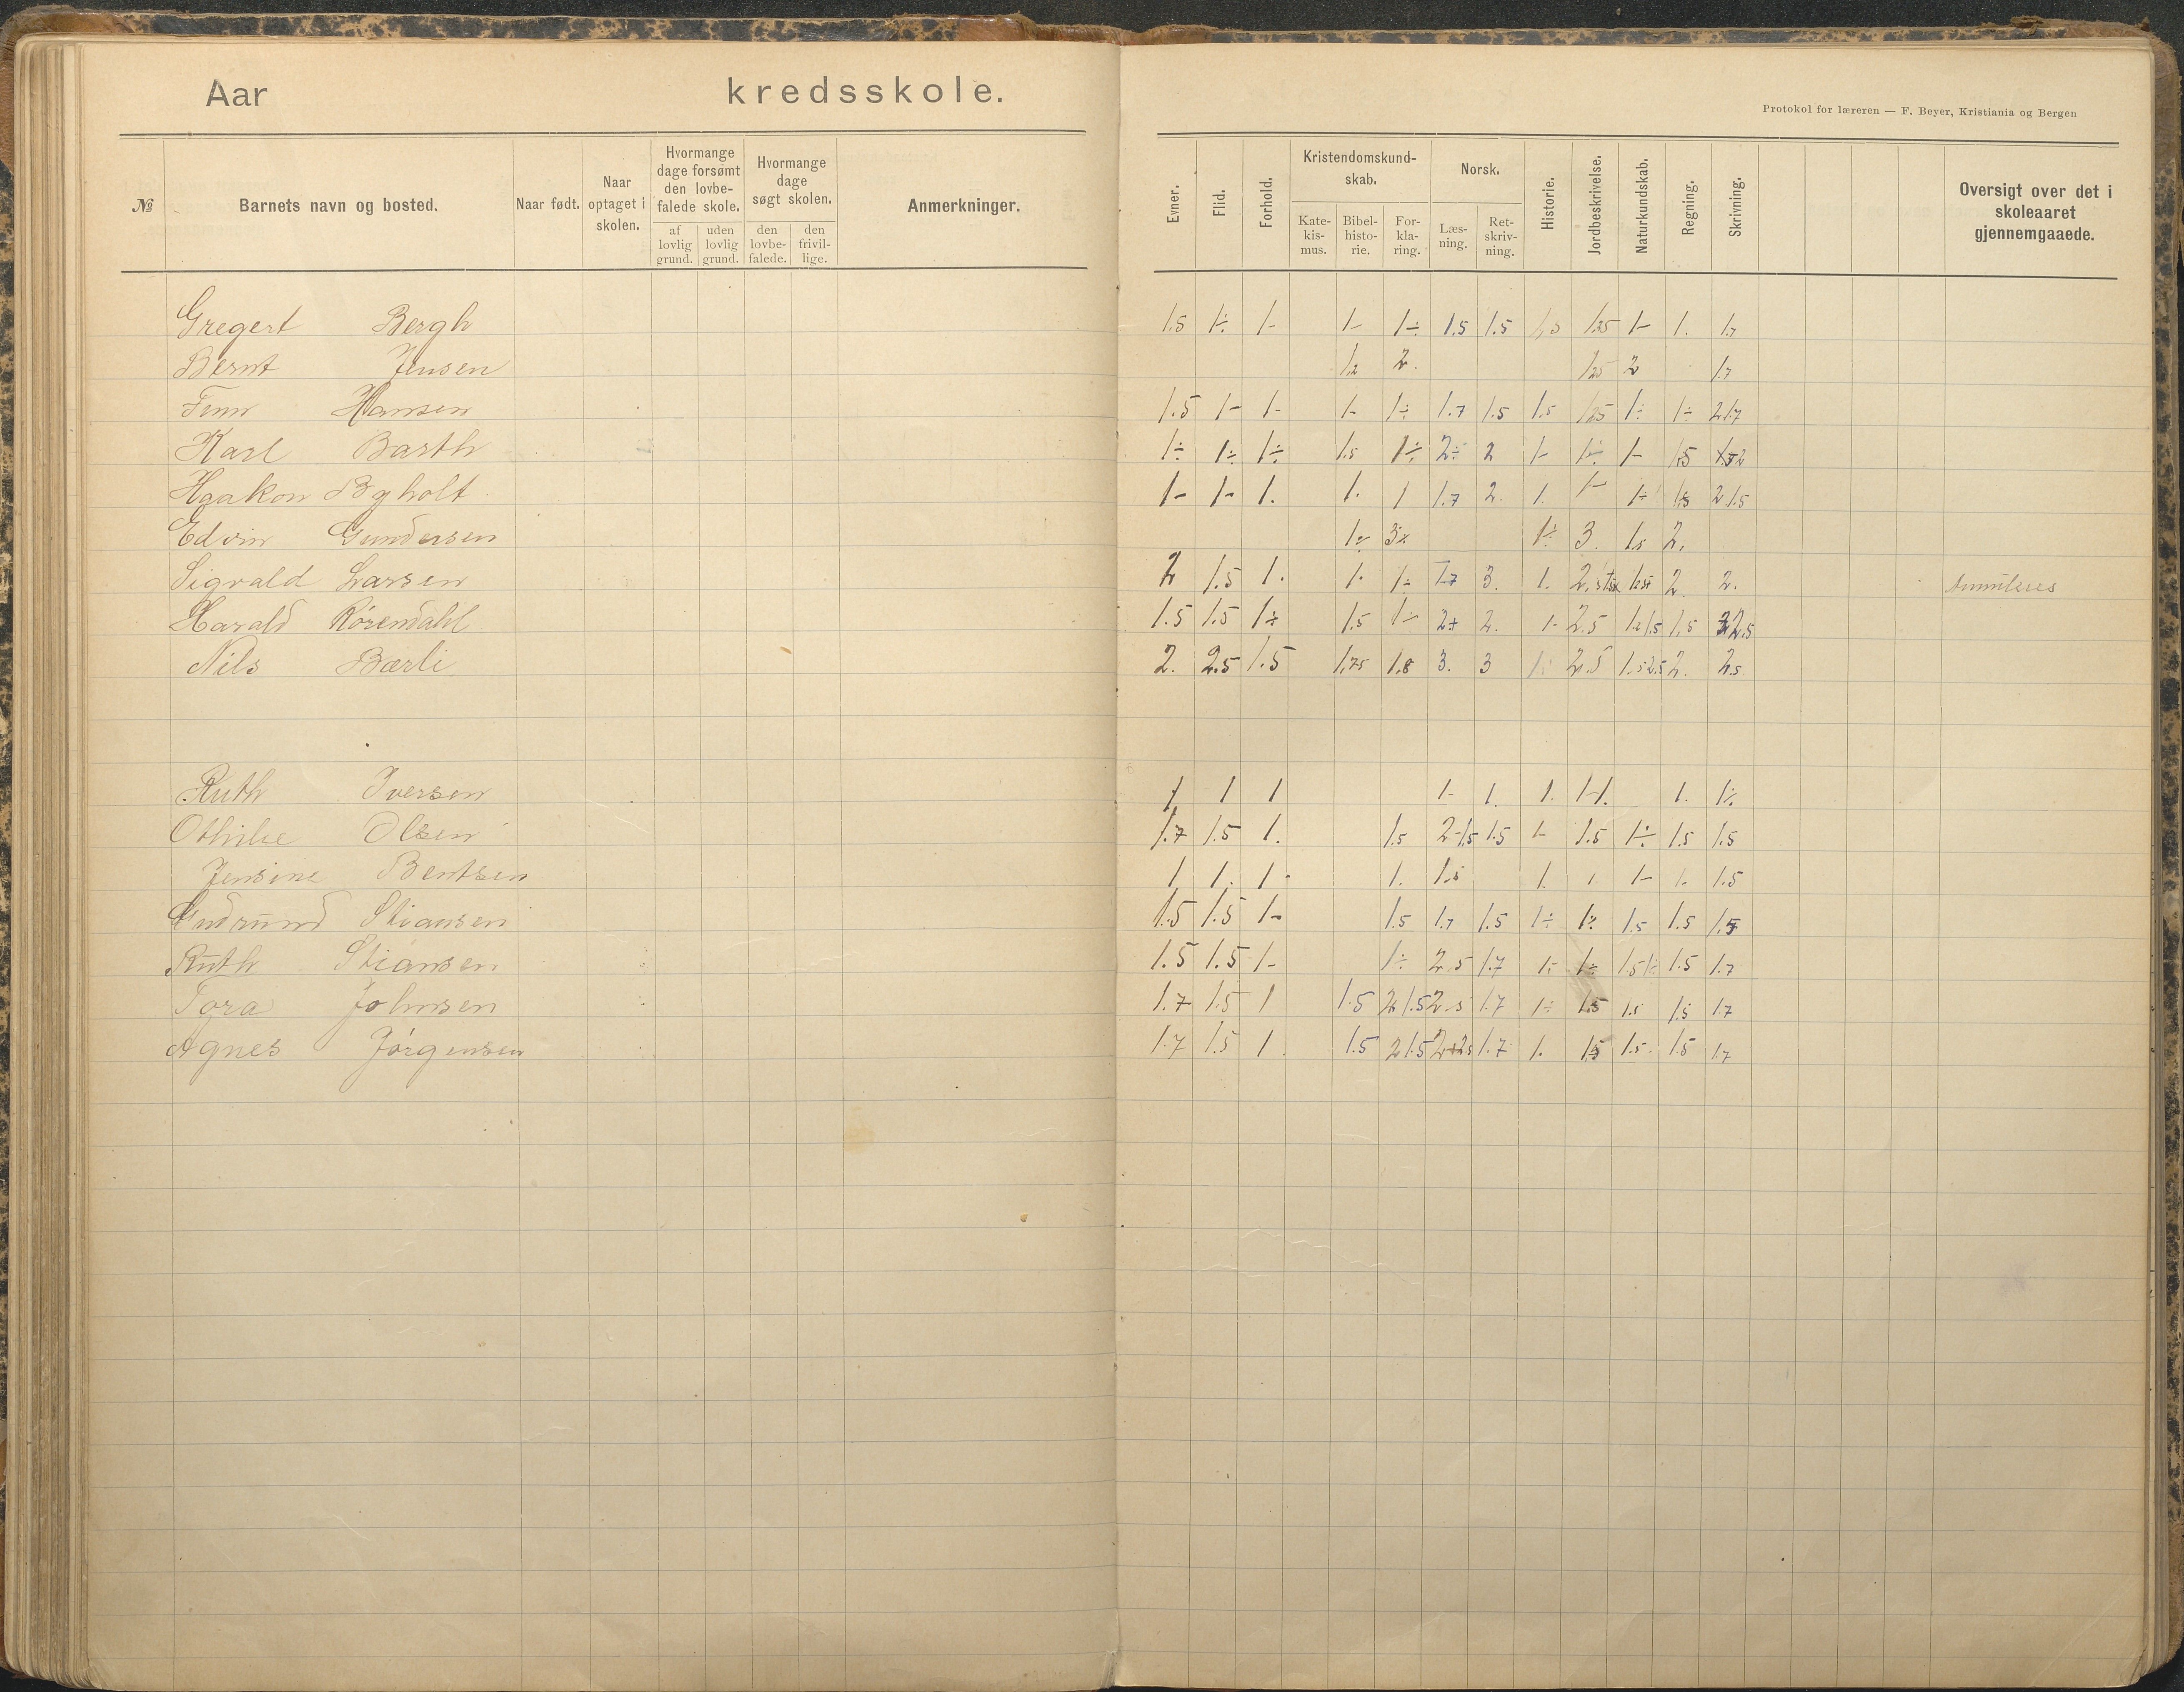 Aar kredsskole.
Protokol for læreren — F. Beyer, Kristiania og Bergen
№ Barnets navn og bosted. Naar født. Naar optaget i skolen. Hvormange dage forsømt den lovbefalede skole. af lovlig grund. uden lovlig grund. Hvormange dage søgt skolen. den lovbefalede. den frivillige. Anmerkninger. Evner. Flid. Forhold. Kristendomskundskab. Katekismus. Bibelhistorie. Forklaring. Norsk. Læsning. Retskrivning. Historie. Jordbeskrivelse. Naturkundskab. Regning. Skrivning. Oversigt over det i skoleaaret gjennemgaaede.
Gregert Bergh 1.5 1÷ 1- 1- 1÷ 1.5 1.5 1.5 1.25 1- 1. 1.7
Bernt Jensen 1.2 2. 1.25 2 1.7
Finn Hansen 1.5 1- 1- 1- 1÷ 1.7 1.5 1.5 1.25 1÷ 1÷ 2 1.7
Karl Barth 1÷ 1÷ 1÷ 1.5 1÷ 2÷ 2 1- 1÷ 1- 1.5 2
Haakon Byholt 1- 1- 1. 1. 1 1.7 2. 1. 1- 1÷ 1.5 2 1.5
Edvin Gundersen 1÷ 3 1÷ 3. 1.5 2.
Sigvald Larsen 2 1.5 1. 1. 1÷ 1.7 3. 1. 2. 2. 2.
Harald Rörendahl 1.5 1.5 1÷ 1.5 1÷ 2+ 2. 1- 2.5 1.2 1.5 1.5 2.5
Nils Bærli 2. 2.5 1.5 1.75 1.8 3. 3 2.5 1.5 2.5 2. 2.5
Ruth Iversen 1 1 1 1- 1. 1. 1-1. 1. 1÷
Othilie Olsen 1.7 1.5 1. 1.5 2-1.5 1.5 1- 1.5 1÷ 1.5 1.5
Jensine Bentsen 1 1. 1. 1. 1.5 1. 1 1- 1. 1.5
Gudrund Stiansen 1.5 1.5 1- 1.5 1.7 1.5 1÷ 1÷ 1.5 1.5 1.5
Ruth Stiansen 1.5 1.5 1- 1÷ 2.5 1.7 1÷ 1÷ 1.5 1÷ 1.5 1.7
Tora Johnsen 1.7 1.5 1 1.5 2 1.5 2.5 1.7 1÷ 1.5 1.5 1.5 1.7
Agnes Jörgensen 1.7 1.5 1 1.5 2 1.5 2+2.5 1.7 1. 1.5 1.5 1.5 1.7